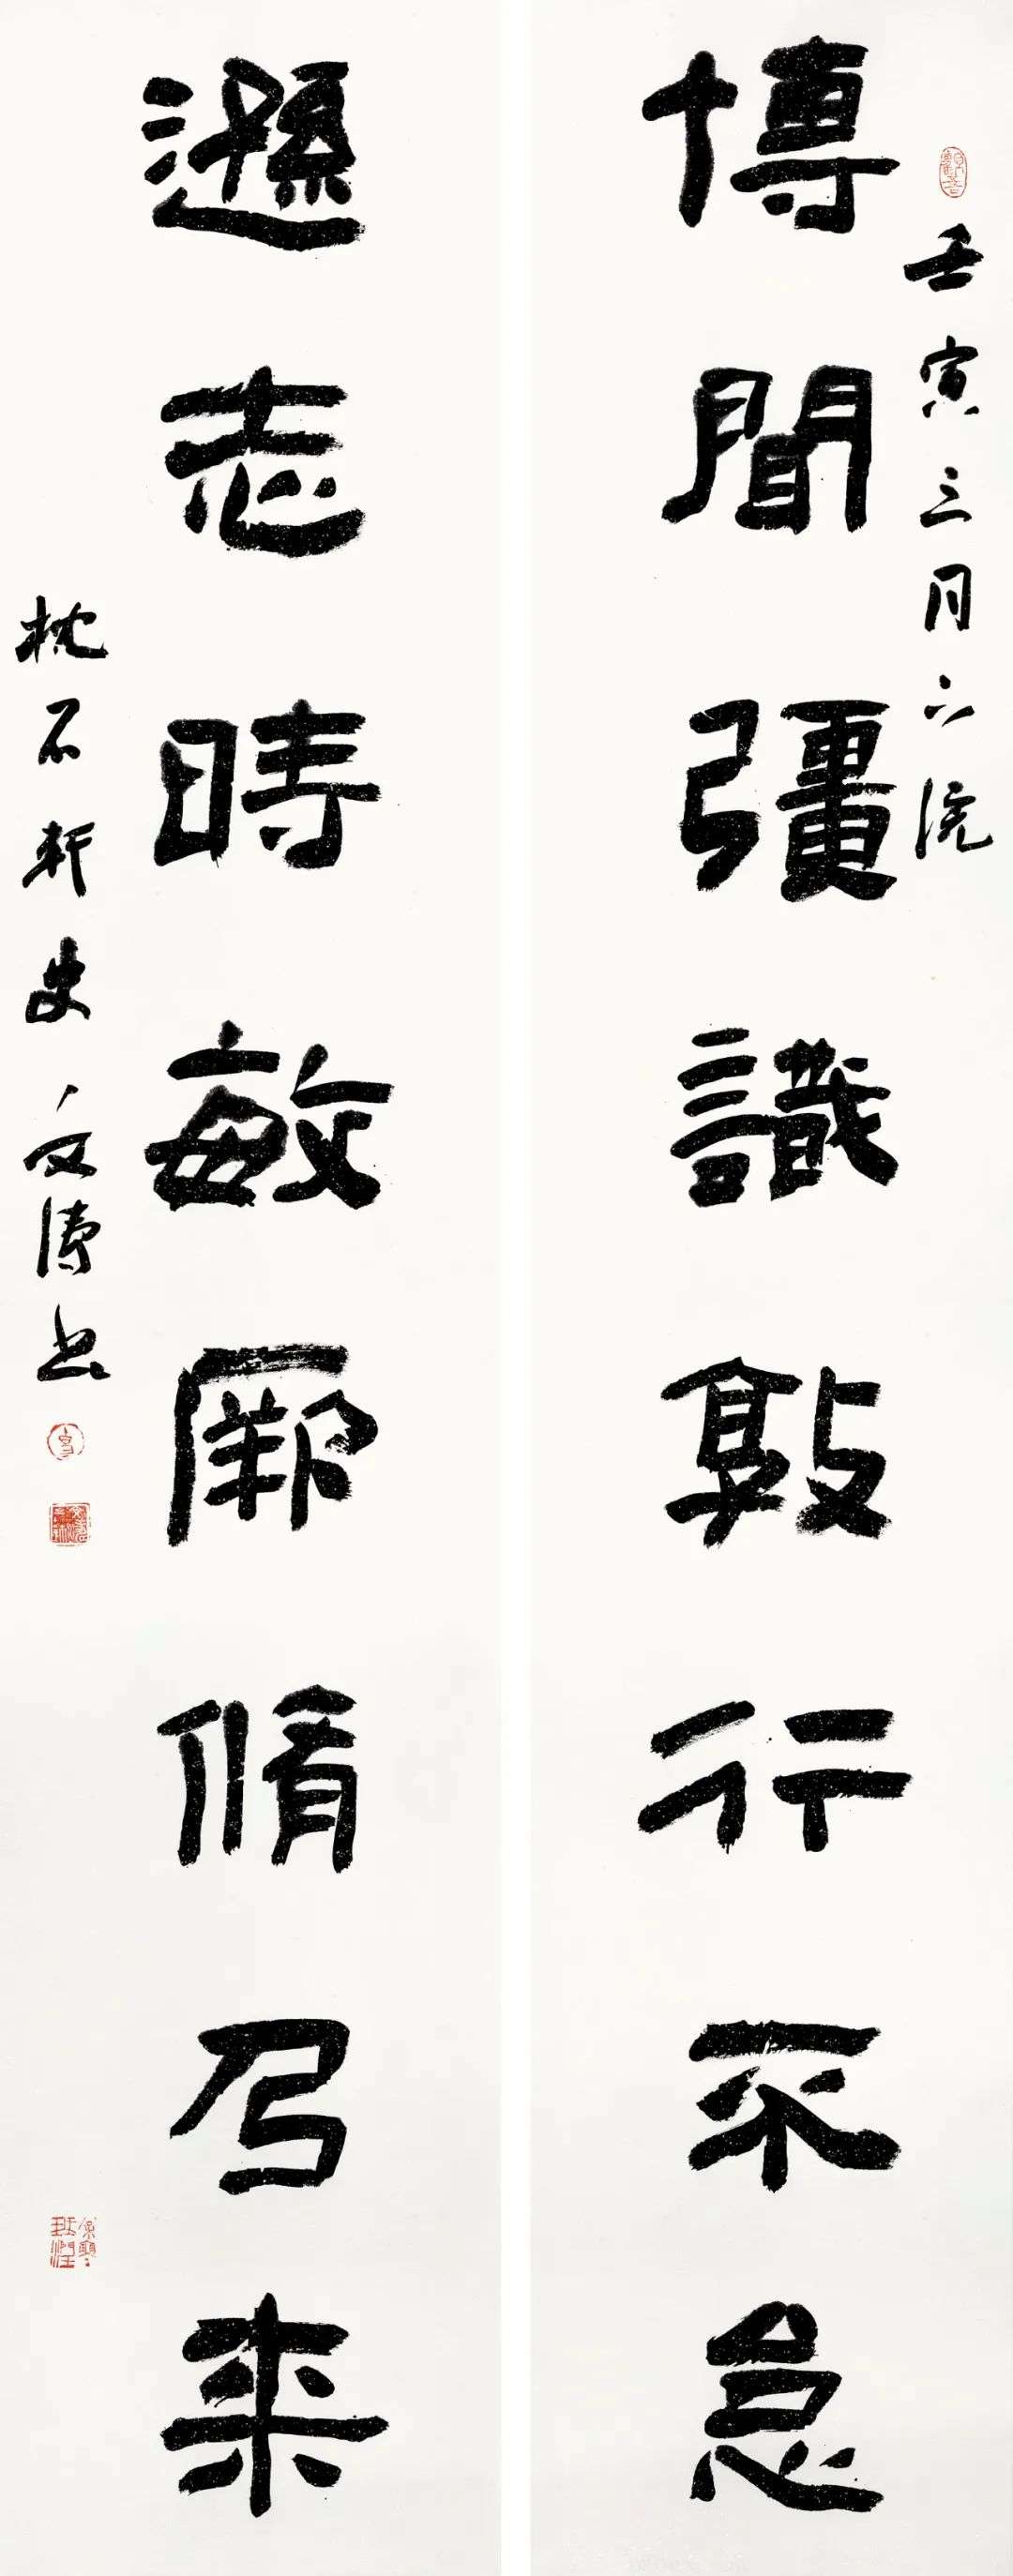 壬寅三月下浣
博聞彊識敦行不怠
遜志時敏厥脩乃来
枕石軒史文濤書